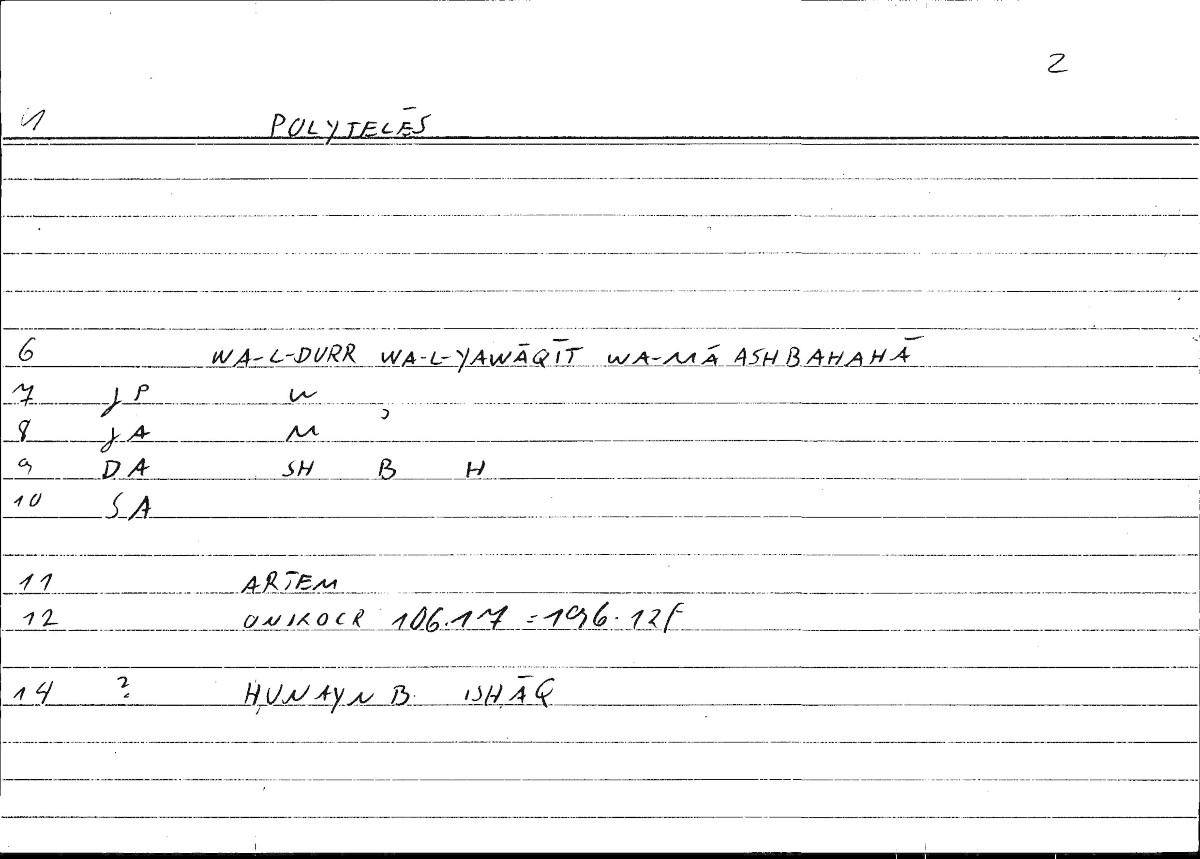 2
1 POLYTELĒS
6 WA-L-DURR WA-L-YAWĀQĪT WA-MĀ ASHBAHAHĀ
7 JP W
8 JA M ʾ
9 DA SH B H
10 SA
11 ARTEM
12 ONIROCR 106.17 = 196.12f
14 ? ḤUNAYN B. ISḤĀQ